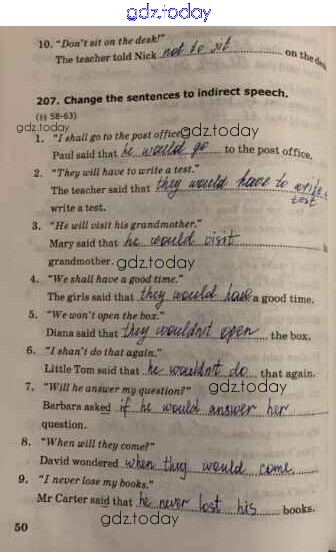 gdz.today
10. "Don't sit on the desk!"
The teacher told Nick not to sit on the desk
207. Change the sentences to indirect speech.
(§§ 58-63)
gdz.today
1. "I shall go to the post office
Paul said that he would go to the post office.
2. "They will have to write a test."
The teacher said that they would have to write
test
write a test.
3. "He will visit his grandmother."
Mary said that he would visit
grandmother.
gdz.today
4. "We shall have a good time."
The girls said that they would have a good time.
5. "We won't open the box."
Diana said that they wouldn't open the box.
gdz.today
6. "I shan't do that again."
Little Tom said that he wouldn't do that again.
7. "Will he answer my question?"
gdz.today
Barbara asked if he would answer her
question.
8. "When will they come?"
David wondered when they would come
9. "I never lose my books."
Mr Carter said that he never lost his books.
50
gdz.today